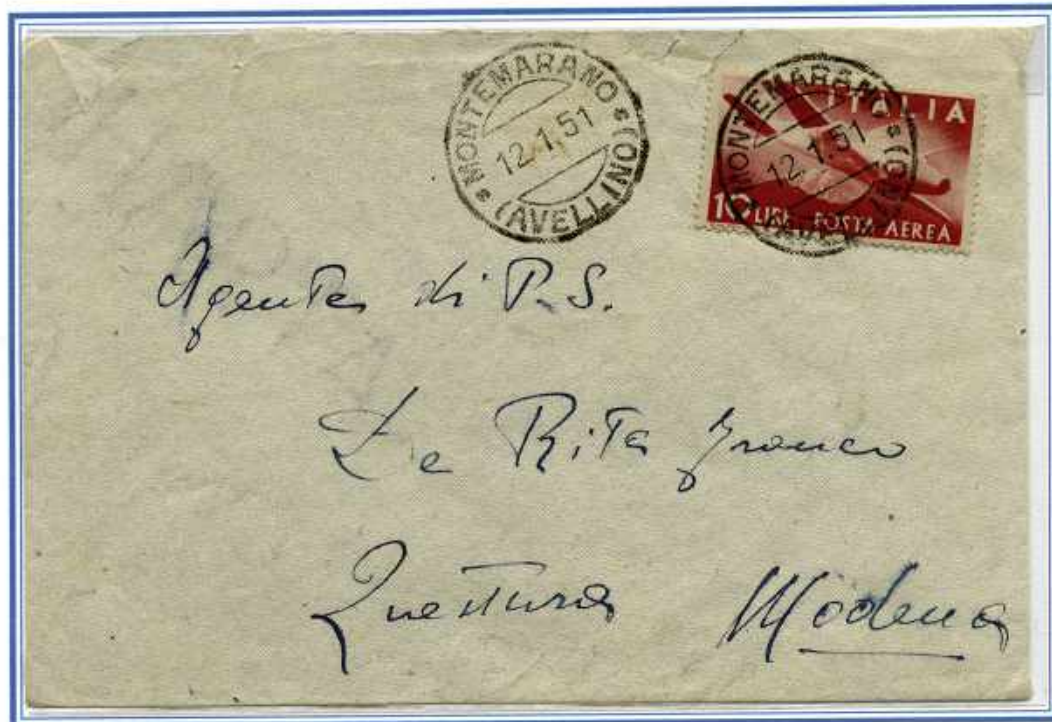 *MONTEMARANO*
12.1.51
(AVELLINO)
*MONTEMARANO*
12.1.51
ITALIA
10 LIRE POSTA AEREA
Agente di P.S.
La Rita Franco
Questura Modena